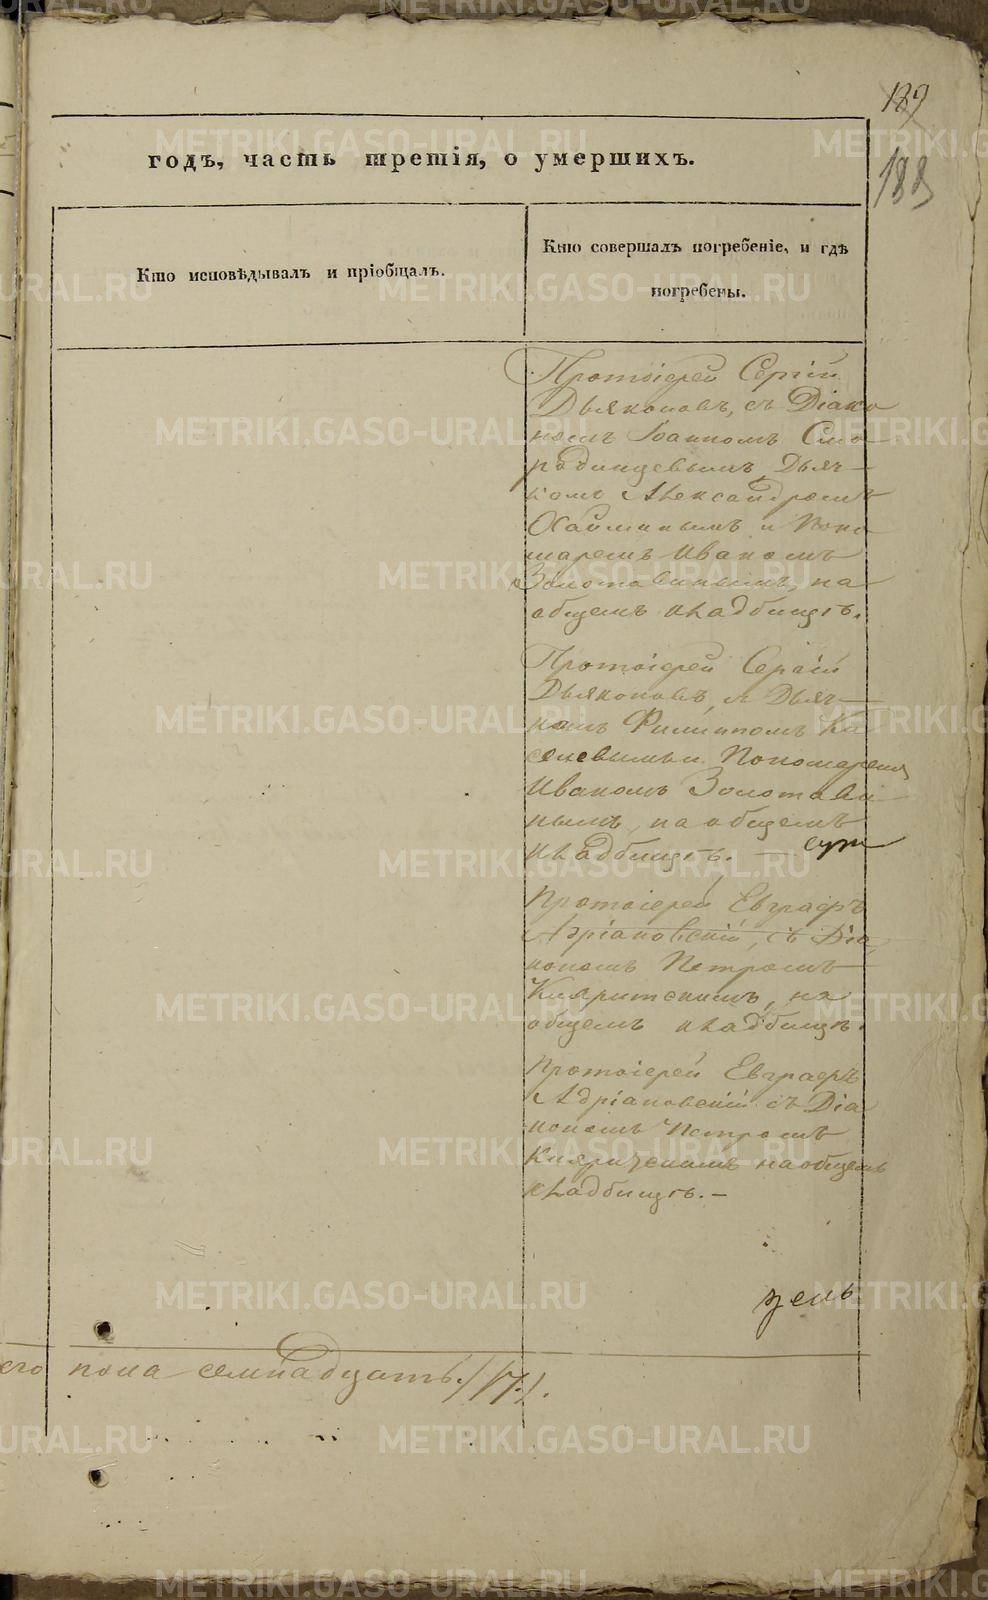 189
188
годъ, часть третія, о умершихъ.
Кто исповѣдывалъ и пріобщалъ.
Кто совершалъ погребеніе, и гдѣ
погребены.
Протоіерей Сергій
Дьяконовъ, съ Діако
номъ Іоанномъ Смо
родинцевымъ, Дьяч
комъ Александромъ
и Поно
маремъ Иваномъ
Золотавинымъ, на
общемъ кладбищѣ.
Протоіерей Сергій
Дьяконовъ, съ Дьяч
комъ Филиппомъ Ки
селевымъ и Пономаремъ
Иваномъ Золотави
нымъ, на общемъ
кладбищѣ. —
Протоіерей Евграфъ
Адріановскій, съ Діа
кономъ Петромъ
на
общемъ кладбищѣ.
Протоіерей Евграфъ
Адріановскій съ Діа
кономъ Петромъ
на общемъ
кладбищѣ. —
его пола семнадцать /17/.
METRIKI.GASO-URAL.RU